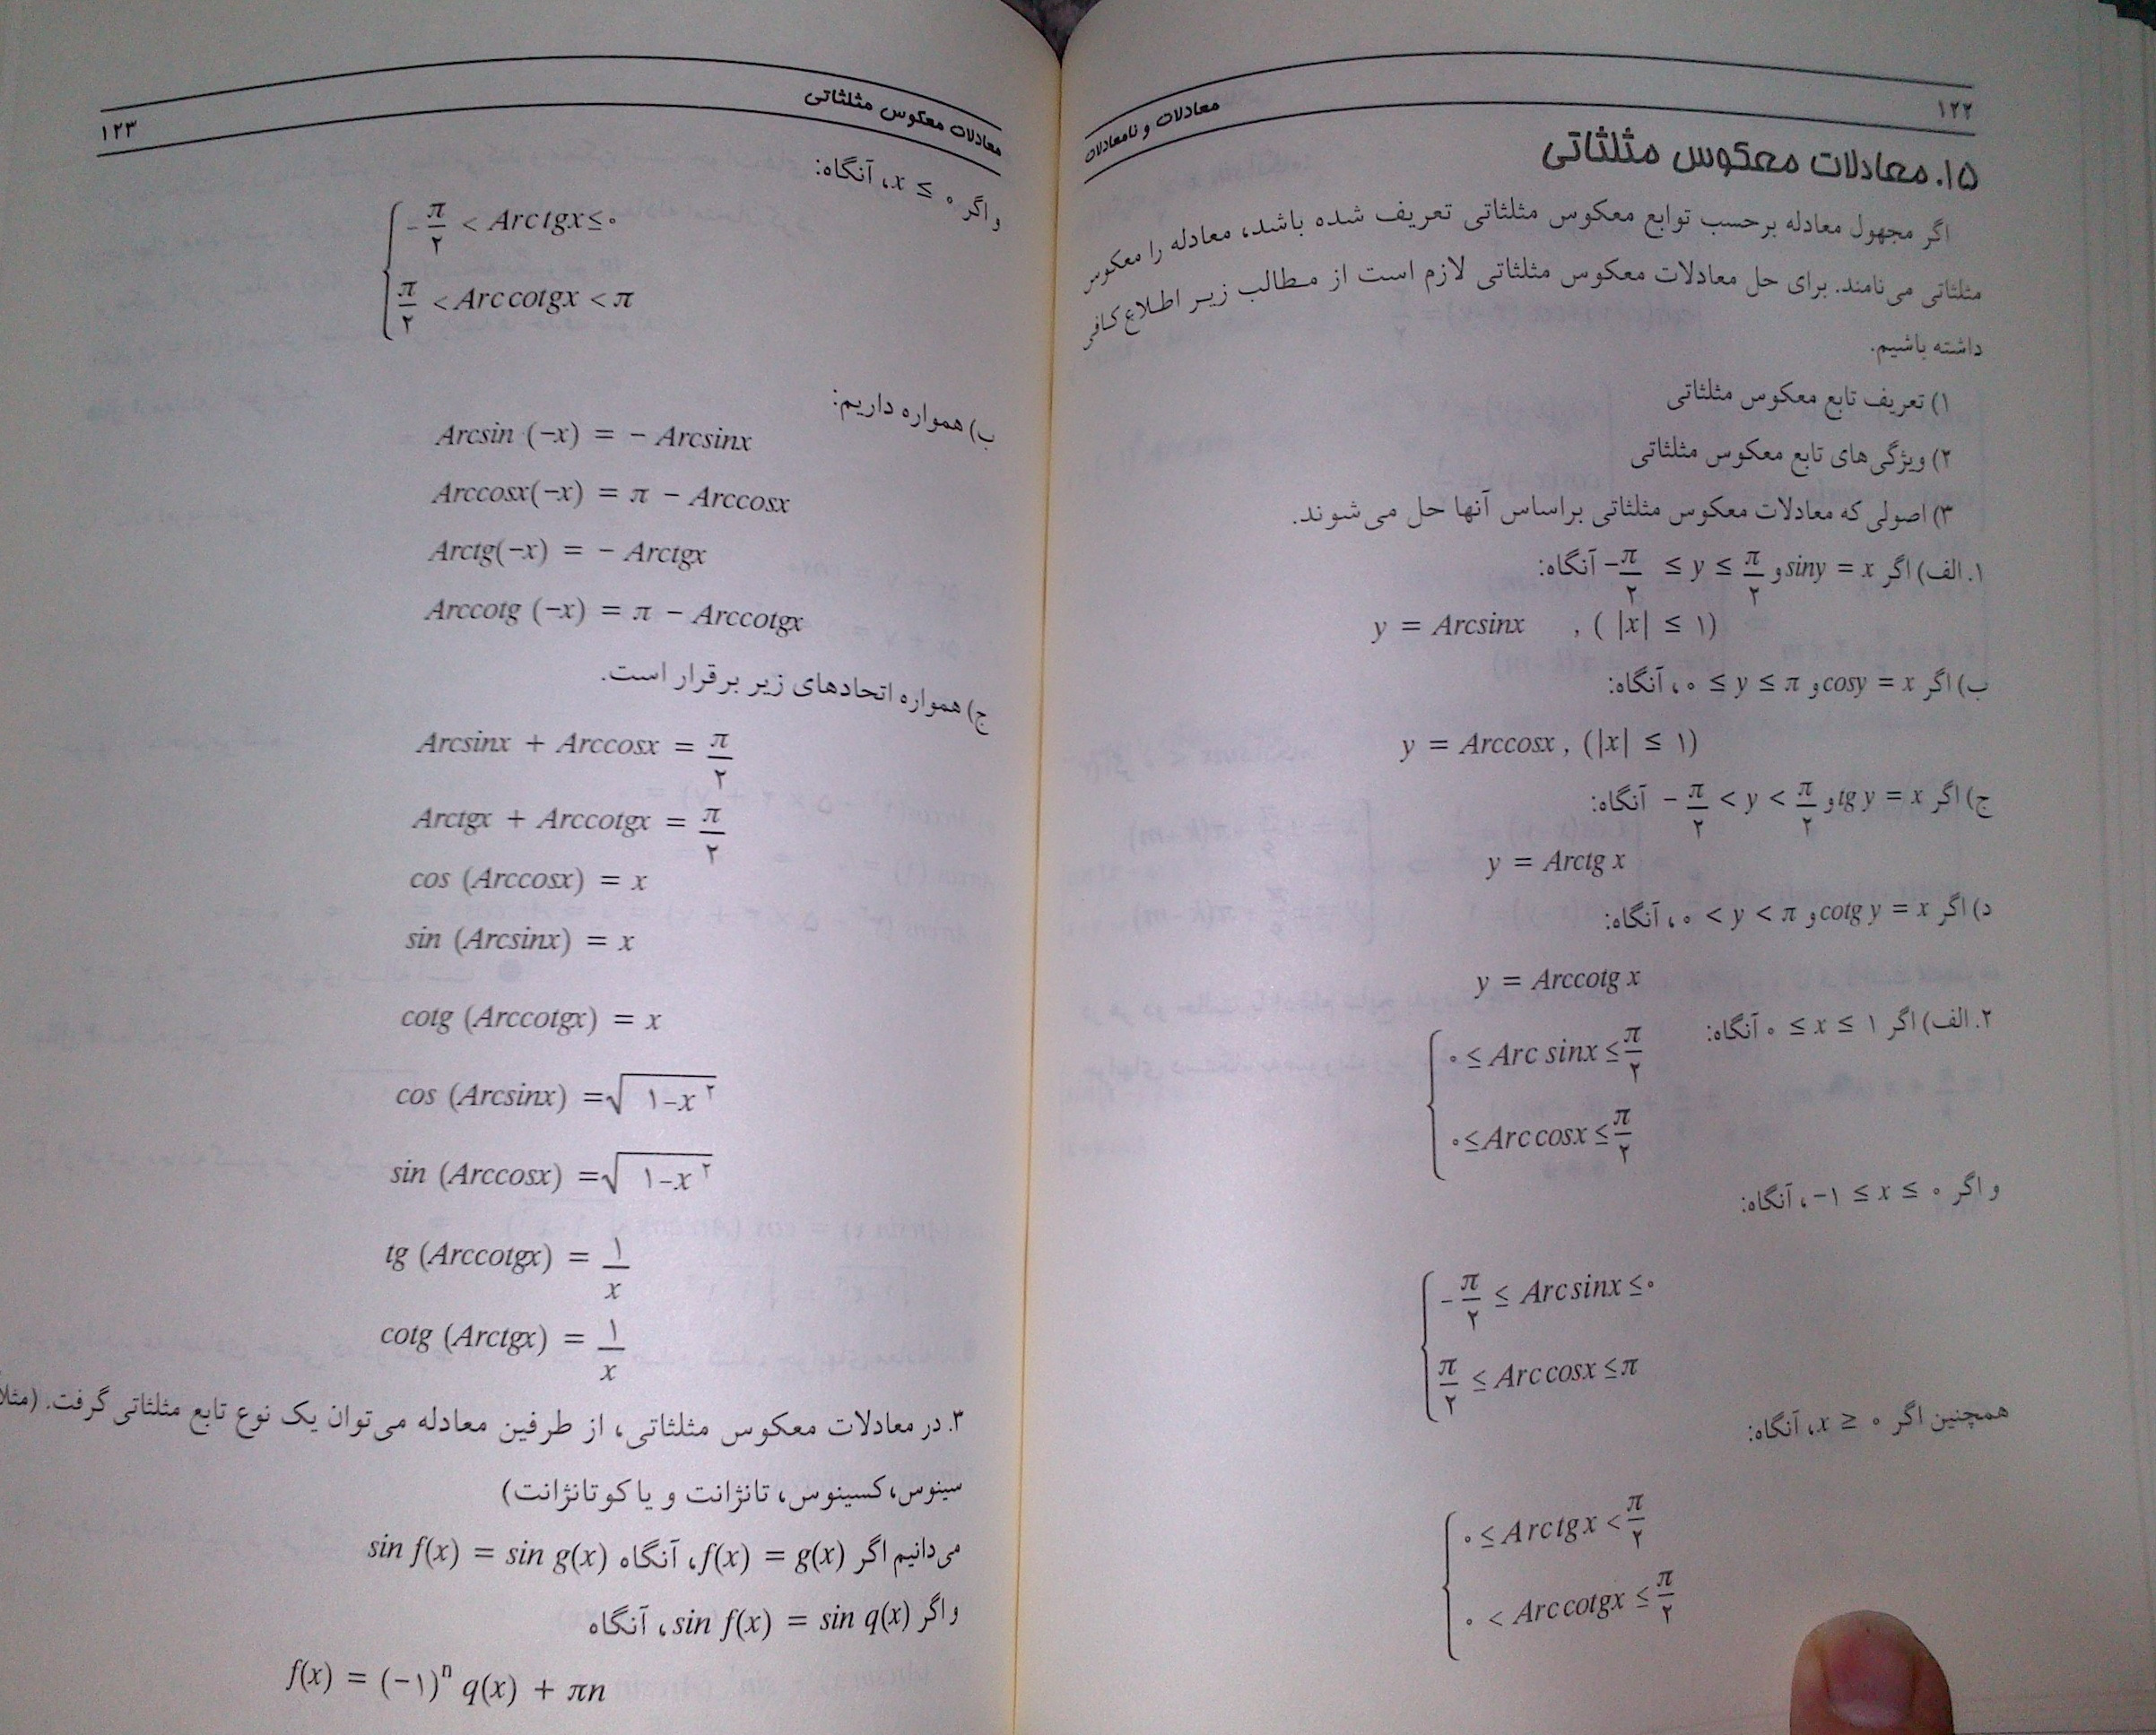 ۱۲۲
معادلات و نامعادلات
۱۵. معادلات معکوس مثلثاتی
اگر مجهول معادله برحسب توابع معکوس مثلثاتی تعریف شده باشد، معادله را معکوس
مثلثاتی می‌نامند. برای حل معادلات معکوس مثلثاتی لازم است از مطالب زیر اطلاع کافی
داشته باشیم.
۱) تعریف تابع معکوس مثلثاتی
۲) ویژگی‌های تابع معکوس مثلثاتی
۳) اصولی که معادلات معکوس مثلثاتی براساس آنها حل می‌شوند.
۱. الف) اگر siny = x و -π/۲ ≤ y ≤ π/۲ آنگاه:
y = Arcsinx , ( |x| ≤ ۱)
ب) اگر cosy = x و ۰ ≤ y ≤ π، آنگاه:
y = Arccosx , (|x| ≤ ۱)
ج) اگر tg y = x و - π/۲ < y < π/۲ آنگاه:
y = Arctg x
د) اگر cotg y = x و ۰ < y < π، آنگاه:
y = Arccotg x
۲. الف) اگر ۰ ≤ x ≤ ۱ آنگاه:
۰ ≤ Arc sinx ≤ π/۲
۰ ≤ Arc cosx ≤ π/۲
و اگر -۱ ≤ x ≤ ۰، آنگاه:
-π/۲ ≤ Arc sinx ≤ ۰
π/۲ ≤ Arc cosx ≤ π
همچنین اگر x ≥ ۰، آنگاه:
۰ ≤ Arctgx < π/۲
۰ < Arc cotgx ≤ π/۲
معادلات معکوس مثلثاتی
۱۲۳
و اگر x ≤ ۰، آنگاه:
-π/۲ < Arctgx ≤ ۰
π/۲ < Arc cotgx < π
ب) همواره داریم:
Arcsin (-x) = - Arcsinx
Arccosx(-x) = π - Arccosx
Arctg(-x) = - Arctgx
Arccotg (-x) = π - Arccotgx
ج) همواره اتحادهای زیر برقرار است.
Arcsinx + Arccosx = π/۲
Arctgx + Arccotgx = π/۲
cos (Arccosx) = x
sin (Arcsinx) = x
cotg (Arccotgx) = x
cos (Arcsinx) = √(۱-x²)
sin (Arccosx) = √(۱-x²)
tg (Arccotgx) = ۱/x
cotg (Arctgx) = ۱/x
۳. در معادلات معکوس مثلثاتی، از طرفین معادله می‌توان یک نوع تابع مثلثاتی گرفت. (مثلاً
سینوس، کسینوس، تانژانت و یا کوتانژانت)
می‌دانیم اگر f(x) = g(x)، آنگاه sin f(x) = sin g(x)
و اگر sin f(x) = sin q(x)، آنگاه
f(x) = (-۱)ⁿ q(x) + πn